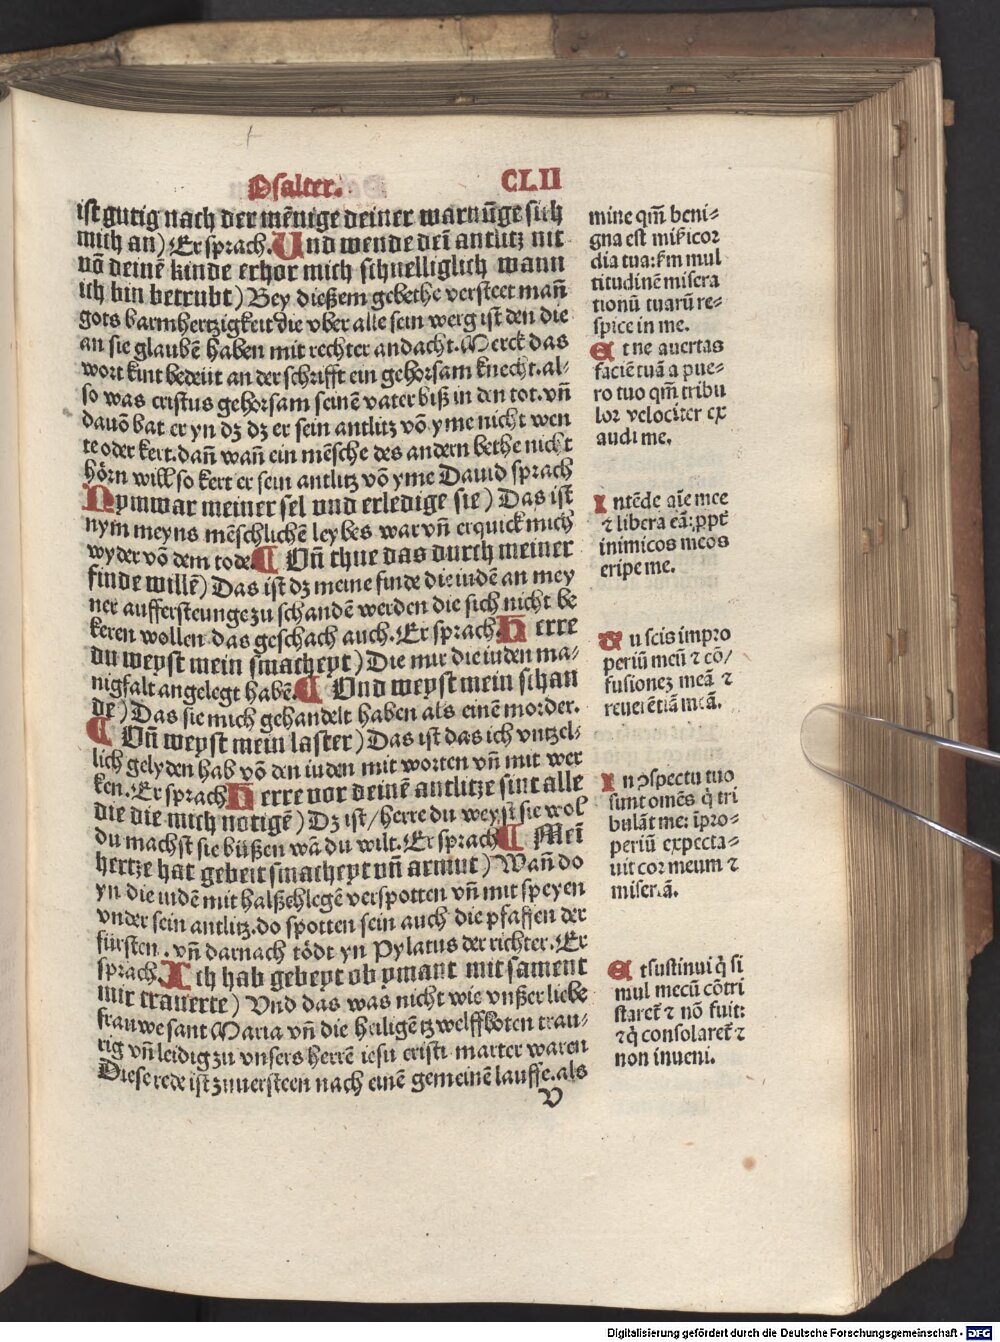 Psalter.
CLII
ist gutig nach der mẽnige deiner warnũge sich
mich an) Er sprach. Und wende deĩ antlitz nit
võ deinẽ kinde erhor mich schnelliglich wann
ich bin betrubt) Bey dießem gebethe versteet mañ
gots barmhertzigkeit die vber alle sein werg ist den die
an sie glaubẽ haben mit rechter andacht. Merck das
wort kint bedeüt an der schrifft ein gehorsam knecht. al-
so was cristus gehorsam seinẽ vater biß in den tot. vñ
dauõ bat er yn dz dz er sein antlitz võ yme nicht wen
te oder kert. dañ wañ ein mẽsche des andern bethe nicht
hörn will so kert er sein antlitz võ yme Dauid sprach
Nymwar meiner sel vnd erledige sie) Das ist
nym meyns mẽschlichẽ leybes war vñ erquick mich
wyder võ dem tode. ¶ Vñ thue das durch meiner
finde willẽ) Das ist dz meine finde die iudẽ an mey
ner auffersteunge zu schandẽ werden die sich nicht be
keren wollen das geschach auch. Er sprach. Herre
du weyst mein smacheyt) Die mir die iuden ma-
nigfalt angelegt habẽ. ¶ Vnd weyst mein schan
de) Das sie mich gehandelt haben als einẽ morder.
¶ Vñ weyst mein laster) Das ist das ich vntzel-
lich gelyden hab võ den iuden mit worten vñ mit wer
ken. Er sprach Herre vor deinẽ antlitze sint alle
die die mich notigẽ) Dz ist/ herre du weyst sie wol
du machst sie büßen wã du wilt. Er sprach ¶ Meĩ
hertze hat gebeit smacheyt vñ armut) Wañ do
yn die iudẽ mit halßschlegẽ verspotten vñ mit speyen
vnder sein antlitz. do spotten sein auch die pfaffen der
fürsten. vñ darnach tödt yn Pylatus der richter. Er
sprach. Ich hab gebeyt ob ymant mit sament
mir trauerte) Vnd das was nicht wie vnßer liebe
frauwe sant Maria vñ die heiligẽ tzwelffboten trau-
rig vñ leidig zu vnsers herrẽ iesu cristi marter waren
Diese rede ist zuuersteen nach einẽ gemeinẽ lauffe. als
V
mine qm̃ beni-
gna est mĩcor
dia tua: k̃m mul
titudinẽ misera
tionũ tuarũ re-
spice in me.
Et ne auertas
faciẽ tuã a pue-
ro tuo qm̃ tribu
lor velociter ex
audi me.
Intẽde aĩe mee
⁊ libera eã: ꝓpt̃
inimicos meos
eripe me.
Tu scis impro
periũ meũ ⁊ cõ/
fusionez meã ⁊
reuerẽtiã meã.
In ꝯspectu tuo
sunt omẽs q̃ tri
bulãt me: ĩpro-
periũ expecta-
uit cor meum ⁊
miseriã.
Et sustinui q̃ si
mul mecũ cõtri
staret̃ ⁊ nõ fuit:
⁊ q̃ consolaret̃ ⁊
non inueni.
Digitalisierung gefördert durch die Deutsche Forschungsgemeinschaft - DFG